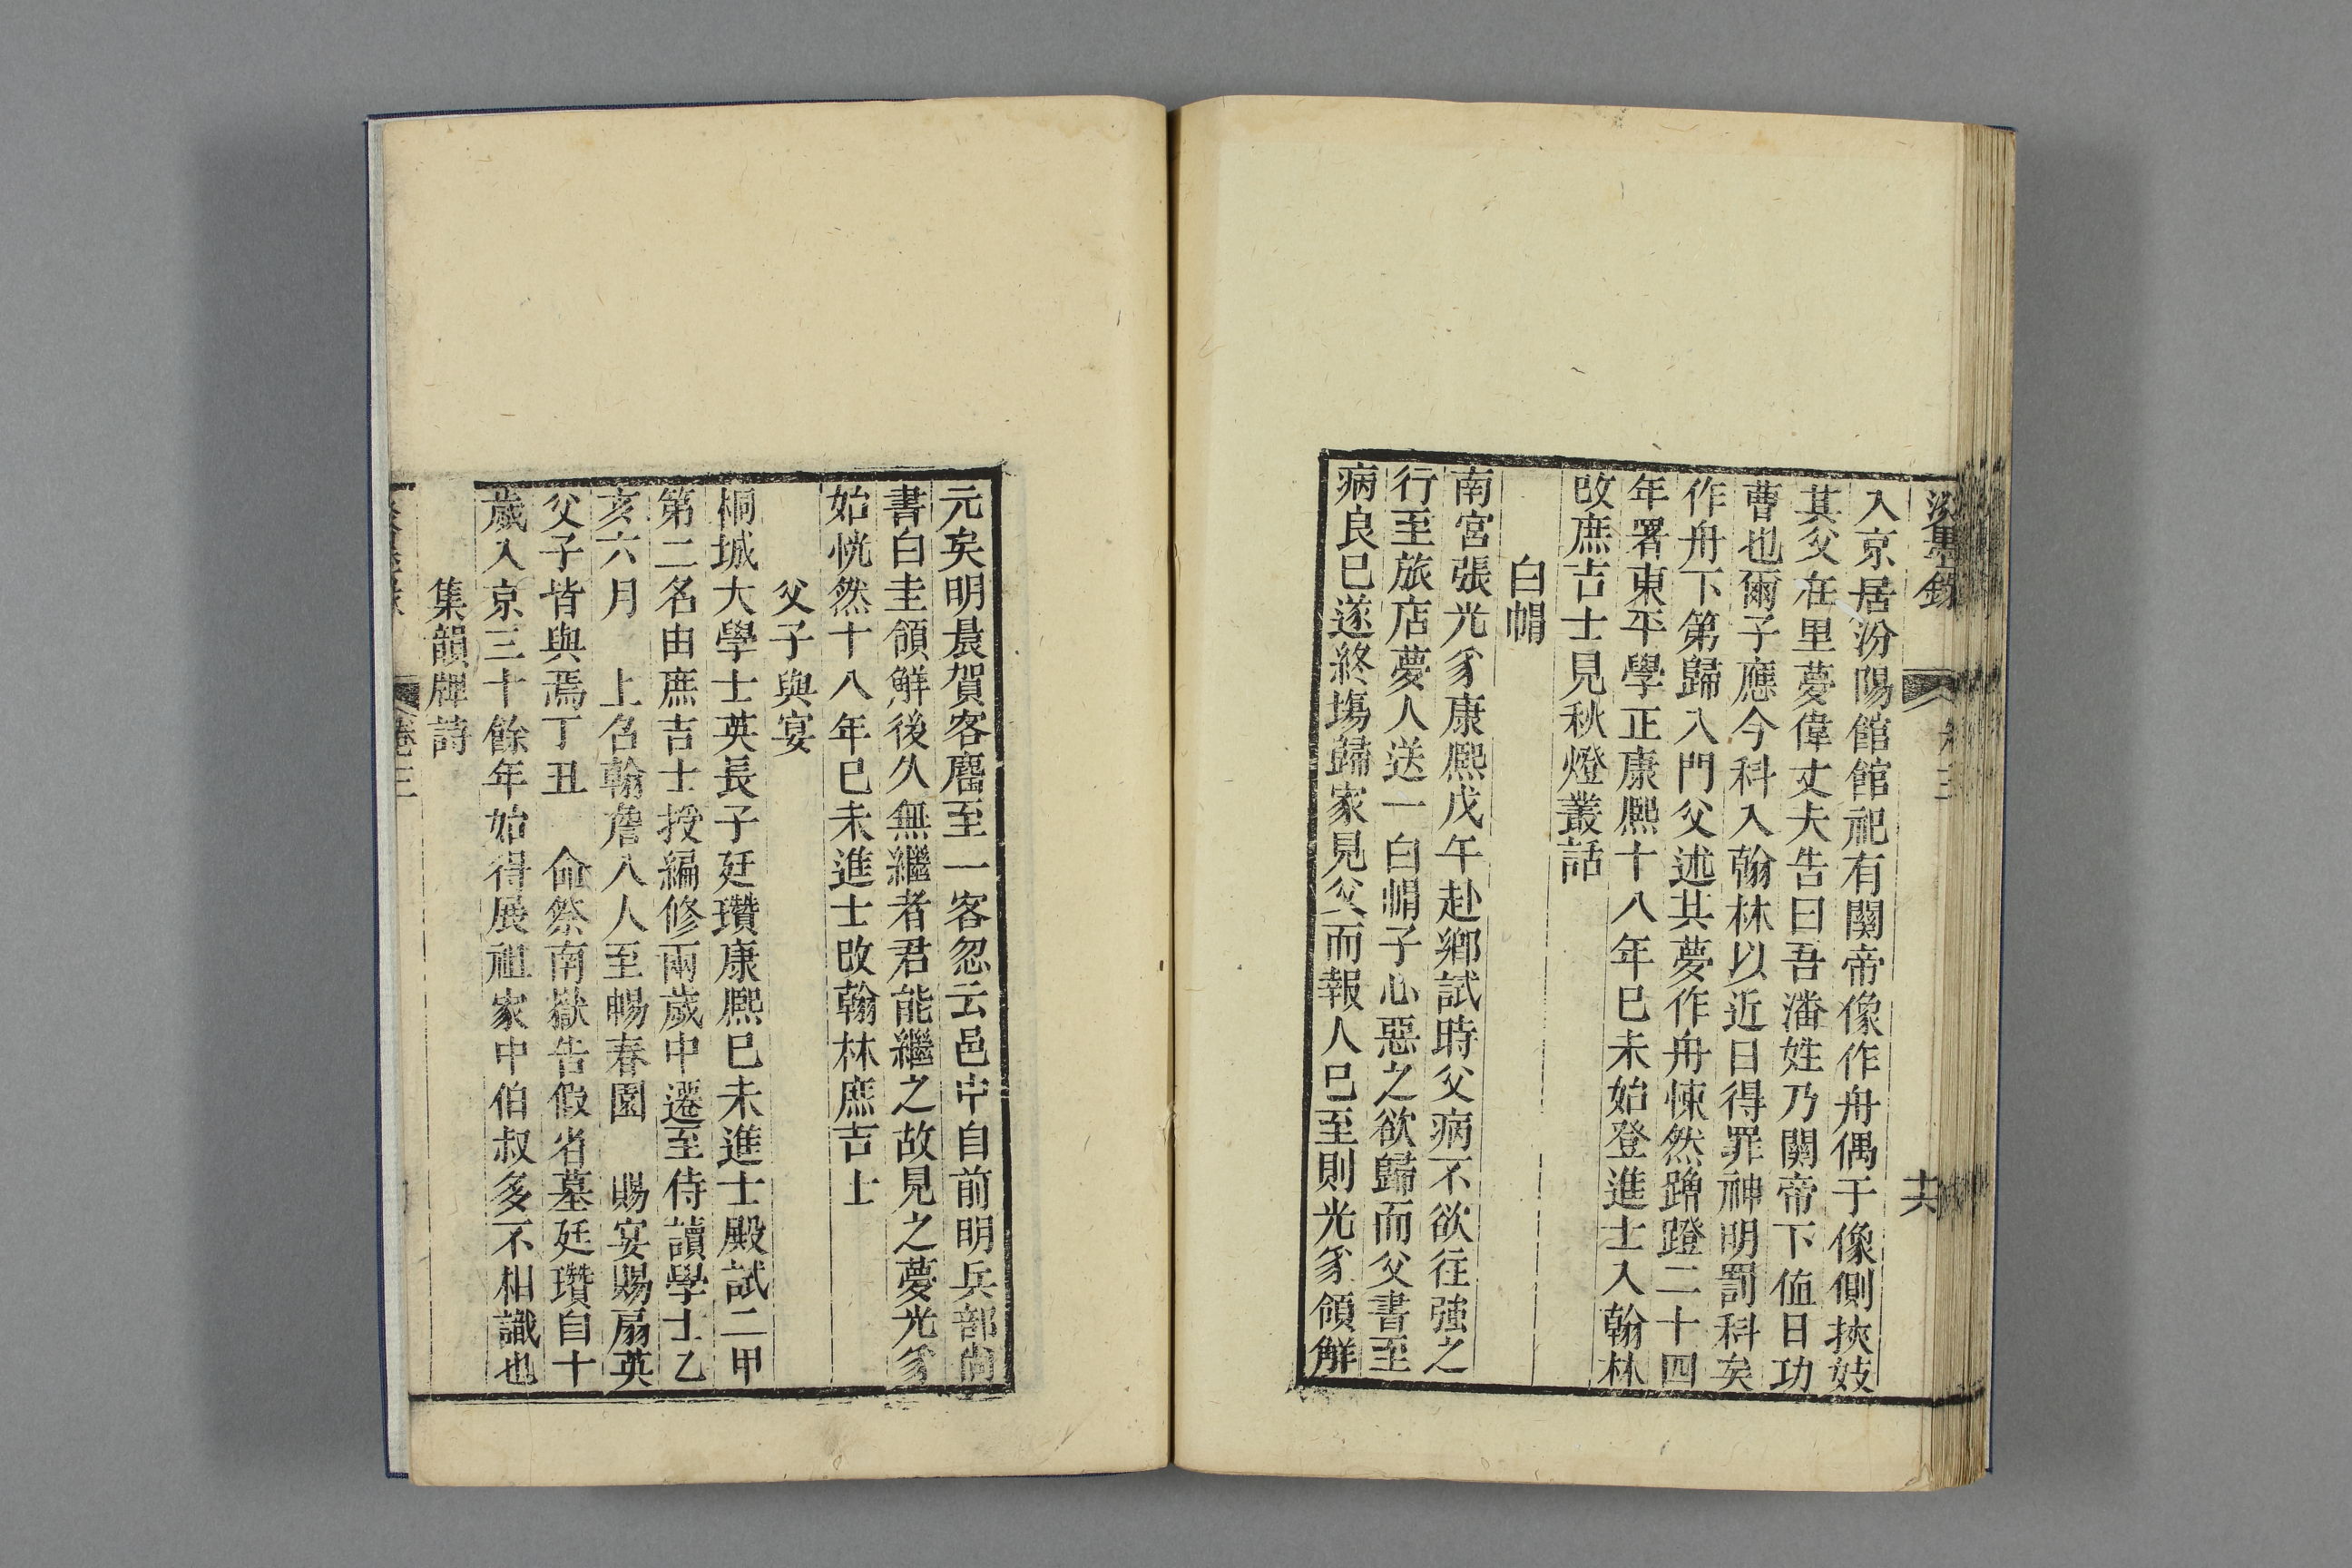 淡墨錄
卷三
共
入京居汾陽館館祀有關帝像作舟偶于像側挾妓
其父在里夢偉丈夫告曰吾潘姓乃關帝下值日功
曹也爾子應今科入翰林以近日得罪神明罰科矣
作舟下第歸入門父述其夢作舟悚然蹭蹬二十四
年署東平學正康熙十八年巳未始登進士入翰林
改庶吉士見秋燈叢話
白帽
南宮張光豸康熙戊午赴鄉試時父病不欲往強之
行至旅店夢人送一白帽子心惡之欲歸而父書至
病良巳遂終塲歸家見父而報人巳至則光豸領解
元矣明晨賀客麕至一客忽云邑中自前明兵部尚
書白圭領解後久無繼者君能繼之故見之夢光豸
始恍然十八年巳未進士改翰林庶吉士
父子與宴
桐城大學士英長子廷瓚康熙巳未進士殿試二甲
第二名由庶吉士授編修兩歲中遷至侍讀學士乙
亥六月 上召翰詹八人至暢春園 賜宴賜扇英
父子皆與焉丁丑 命祭南嶽告假省墓廷瓚自十
歲入京三十餘年始得展祖家中伯叔多不相識也
集韻牌詩
卷三